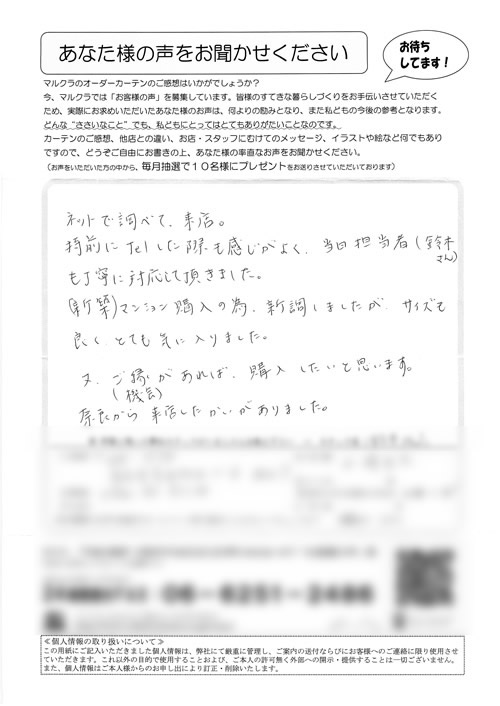 あなた様の声をお聞かせください
お待ち
してます！
マルクラのオーダーカーテンのご感想はいかがでしょうか？
今、マルクラでは「お客様の声」を募集しています。皆様のすてきな暮らしづくりをお手伝いさせていただく
ため、実際にお求めいただいたあなた様のお声は、何よりの励みとなり、また私どもの今後の参考となります。
どんな“ささいなこと”でも、私どもにとってはとてもありがたいことなのです。
カーテンのご感想、他店との違い、お店・スタッフにむけてのメッセージ、イラストや絵など何でもあり
ですので、どうぞご自由にお書きの上、あなた様の率直なお声をお聞かせください。
（お声をいただいた方の中から、毎月抽選で１０名様にプレゼントをお送りさせていただいております）
ネットで調べて、来店。
事前に Telした際も感じがよく、当日担当者（鈴木さん）
も丁寧に対応して頂きました。
（新築）マンション購入の為、新調しましたが、サイズも
良く とても気に入りました。
又、ご縁があれば、購入したいと思います。
（機会）
奈良から来店したかいがありました。
06-6251-2486
≪個人情報の取り扱いについて≫
この用紙にご記入いただきました個人情報は、弊社にて厳重に管理し、ご案内の送付ならびにお客様へのご連絡に限り使用させ
ていただきます。これ以外の目的で使用することおよび、ご本人の許可無く外部への開示・提供することは一切ございません。
また、個人情報はご本人様からのお申し出により訂正・削除いたします。